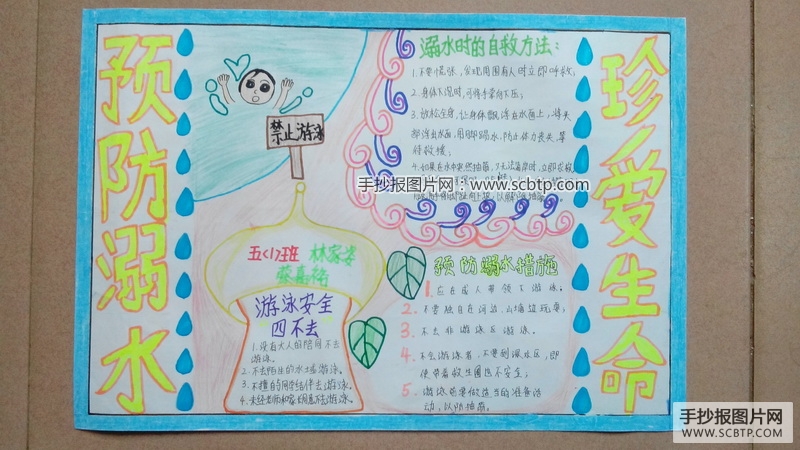 预防溺水
禁止游泳
五<1>班
游泳安全
四不去
1.没有大人的陪同不去
游泳。
2.不去陌生的水域游泳。
3.不擅自与同学结伴去游泳。
4.未经老师和家长同意不去游泳。
溺水时的自救方法:
1.不要慌张,发现周围有人时立即呼救;
2.身体下沉时,可将手掌向下压;
3.放松全身,让身体飘浮在水面上,将头
部浮出水面,用脚踢水,防止体力丧失,等
待救援;
4.如果在水中突然抽筋,又无法靠岸时,立即求救
手抄报图片网:www.scbtp.com
预防溺水措施
1.应在成人带领下游泳;
2.不要独自在河边、山塘边玩耍;
3.不去非游泳区游泳。
4.不会游泳者,不要到深水区,即
使带着救生圈也不安全;
5.游泳前要做适当的准备活
动,以防抽筋。
珍爱生命
手抄报图片网
WWW.SCBTP.COM